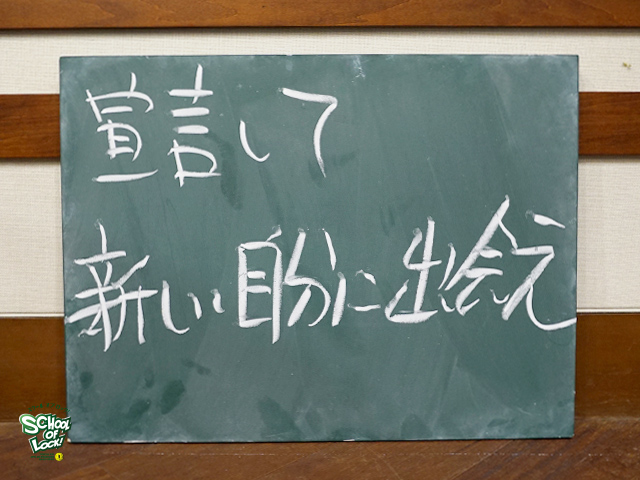 宣言して
新しい自分に出会え
SCHOOL
OF
LOCK!